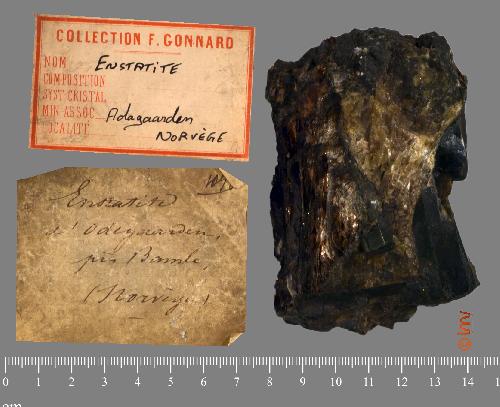 COLLECTION F. GONNARD
NOM ENSTATITE
COMPOSITION
SYST CRISTAL
MIN ASSOC
LOCALITÉ Adagaarden
NORVÈGE
Enstatite
d'Odegaarden,
près Bamle,
(Norvège)
0 1 2 3 4 5 6 7 8 9 10 11 12 13 14 1
cm